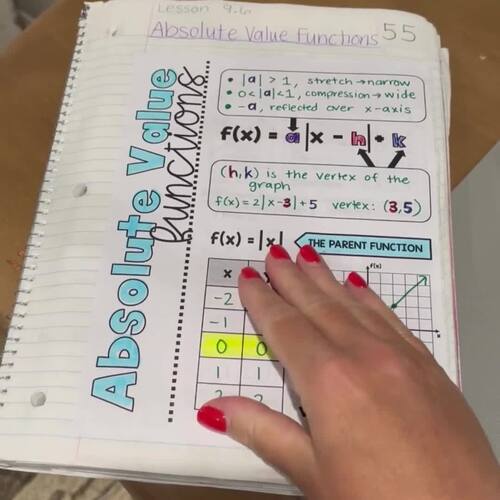 Lesson 9.6
Absolute Value Functions 55
Absolute Value
functions
• |a| > 1, stretch → narrow
• 0 < |a| < 1, compression → wide
• -a, reflected over x-axis
f(x) = a |x - h| + k
(h,k) is the vertex of the
graph
f(x) = 2|x-3|+5 vertex: (3,5)
f(x) = |x| THE PARENT FUNCTION
x
f(x)
-2
-1
0 0
1 1
2 2
x